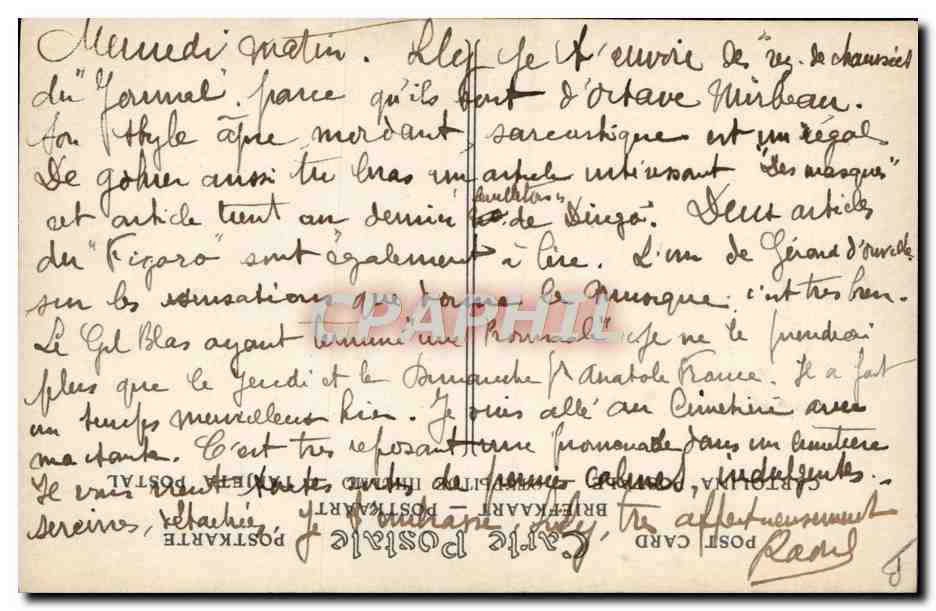 Mercredi matin. Lily je t'envoie des "rez. de chaussée"
du "Journal" parce qu'ils sont d'Octave Mirbeau.
Son style âpre, mordant, sarcastique est un régal
De Gohier aussi tu liras un article intéressant "Des masques"
cet article tient au dernier feuilleton de Dingo. Deux articles
du "Figaro" sont également à lire. L'un de Gérard d'Ouville
sur les sensations que donne la Musique. c'est très bien.
Le Gil Blas ayant terminé une "Prouvade" je ne le prendrai
plus que le Jeudi et le Dimanche pr Anatole France. Il a fait
un temps merveilleux hier. Je suis allé au Cimetière avec
ma tante. C'est très reposant une promenade dans un cimetière
Il vous vient toutes sortes de pensées calmes, indulgentes.
sereines, détachées. Je t'embrasse, Lily, très affectueusement
Raoul
CPAPHIL
CARTOLINA POSTALE — TARJETA POSTAL
BRIEFKAART — POSTKAART
POST CARD Carte Postale POSTKARTE